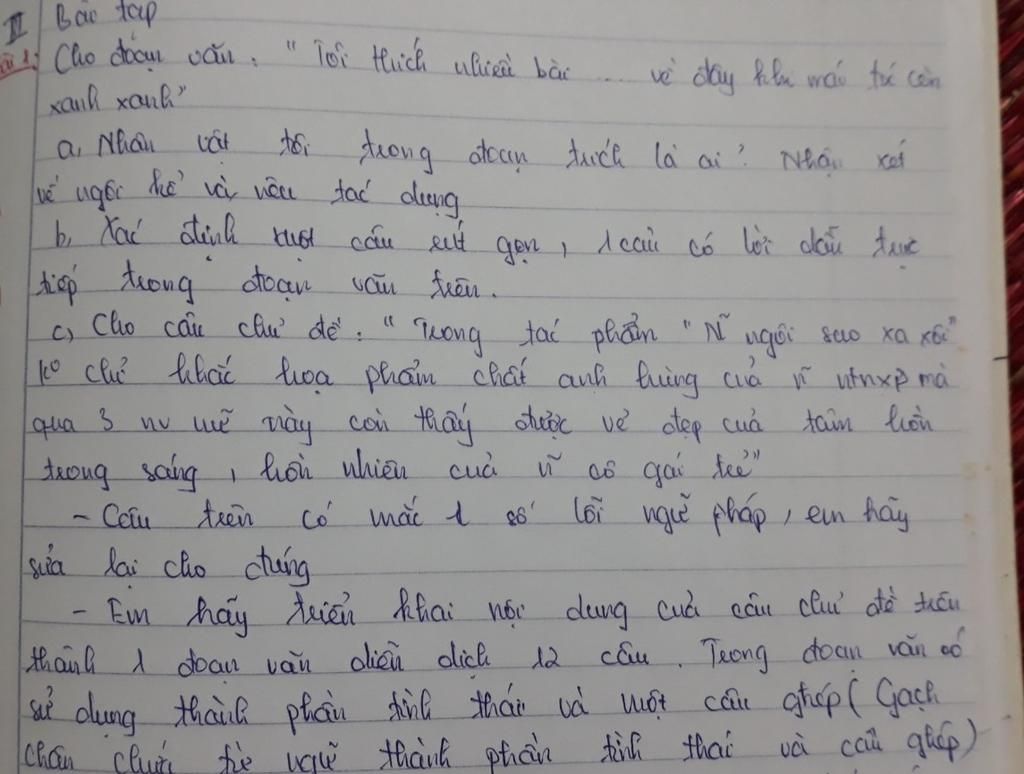 II Bài tập
Bài 1: Cho đoạn văn: "Tôi thích nhiều bài ... về đây khi mái tóc còn
xanh xanh"
a, Nhân vật tôi trong đoạn trích là ai? Nhận xét
về ngôi kể và nêu tác dụng
b, Xác định một câu rút gọn, 1 câu có lời dẫn trực
tiếp trong đoạn văn trên.
c, Cho câu chủ đề: "Trong tác phẩm "N~ ngôi sao xa xôi"
ko chỉ khắc hoạ phẩm chất anh hùng của n~ ntnxp mà
qua 3 nv nữ này còn thấy được vẻ đẹp của tâm hồn
trong sáng, hồn nhiên của n~ cô gái trẻ"
- Câu trên có mắc 1 số lỗi ngữ pháp, em hãy
sửa lại cho đúng
- Em hãy triển khai nội dung của câu chủ đề trên
thành 1 đoạn văn diễn dịch 12 câu. Trong đoạn văn có
sử dụng thành phần tình thái và một câu ghép (Gạch
chân dưới từ ngữ thành phần tình thái và câu ghép)